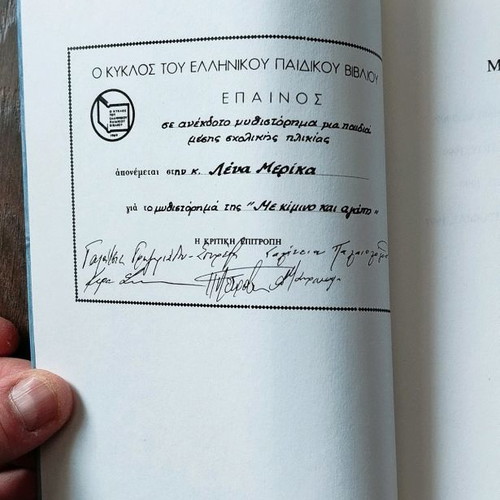 Ο ΚΥΚΛΟΣ ΤΟΥ ΕΛΛΗΝΙΚΟΥ ΠΑΙΔΙΚΟΥ ΒΙΒΛΙΟΥ
ΕΠΑΙΝΟΣ
σε ανέκδοτο μυθιστόρημα για παιδιά
μέσης σχολικής ηλικίας
απονέμεται στην κ. Λένα Μερίκα
γιά το μυθιστόρημά της "Με κίμινο και αγάπη"
Η ΚΡΙΤΙΚΗ ΕΠΙΤΡΟΠΗ
Μ